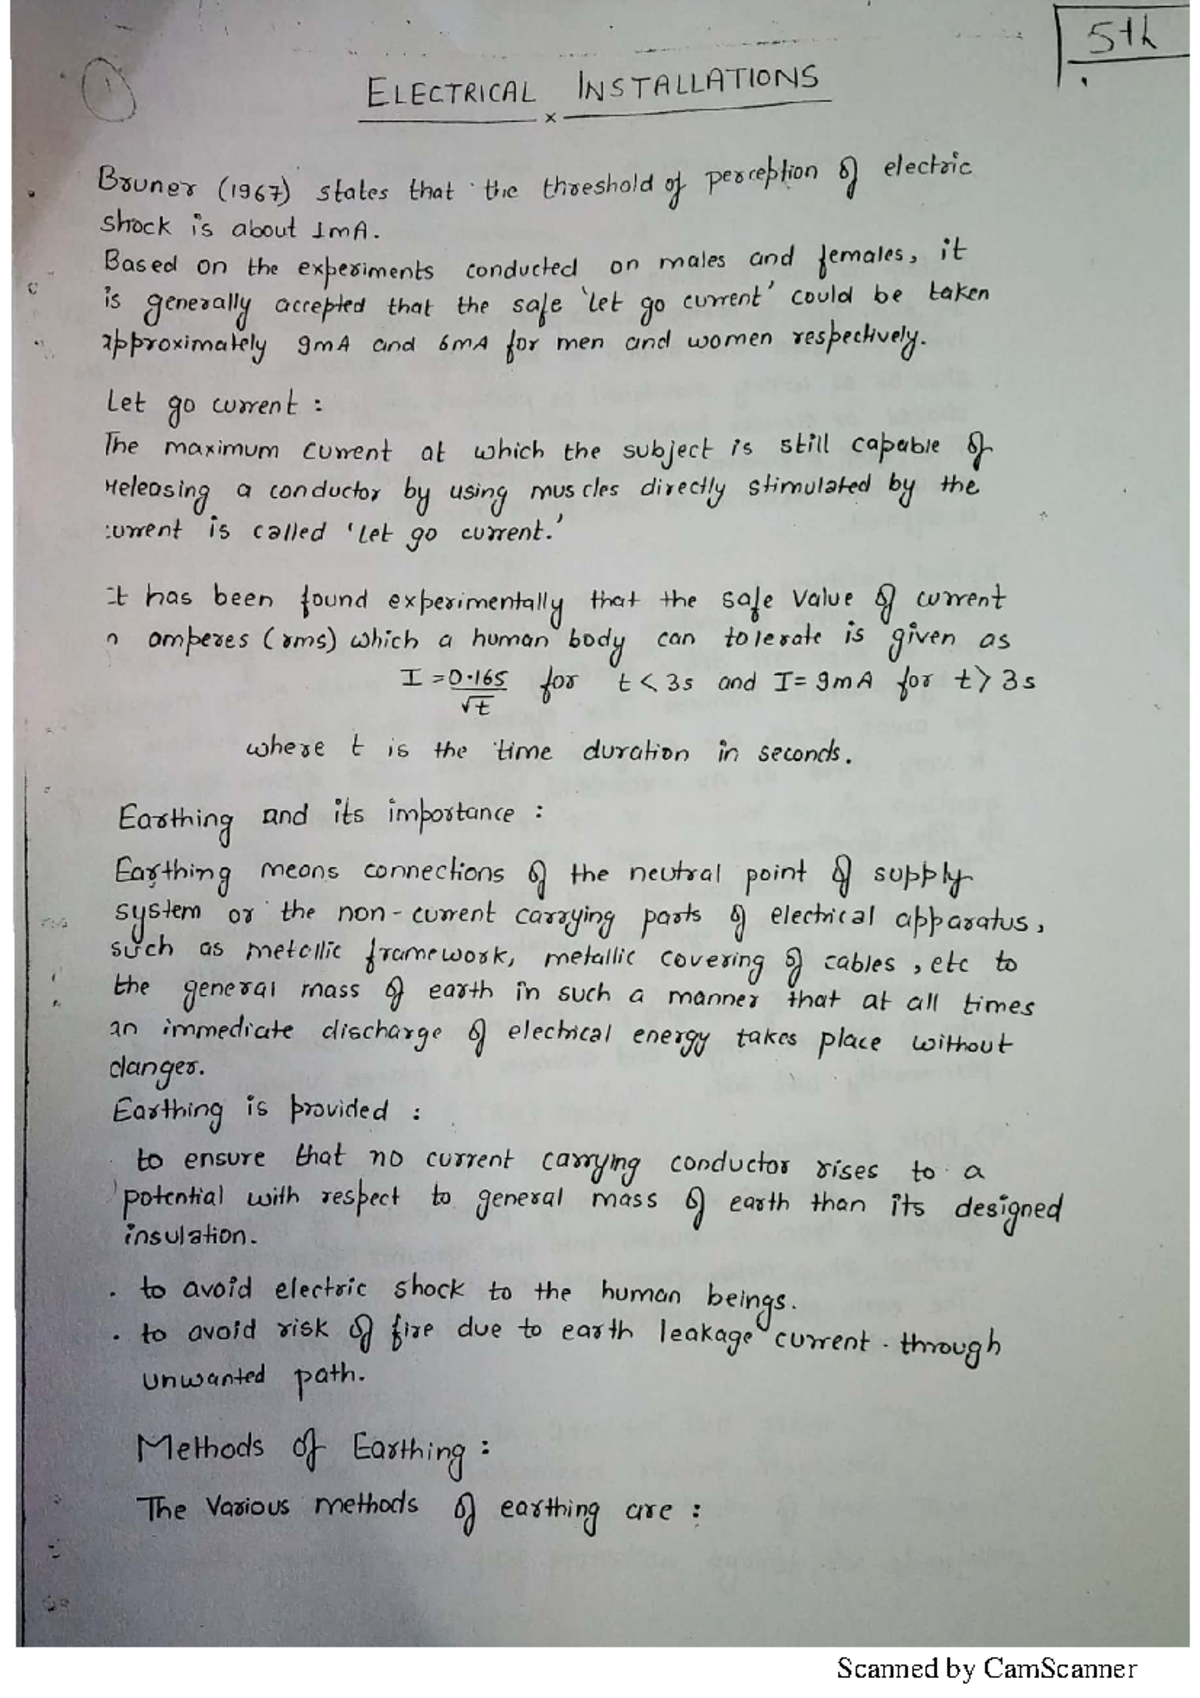 5th
1
ELECTRICAL INSTALLATIONS
x
Bruner (1967) states that the threshold of perception of electric
shock is about 1mA.
Based on the experiments conducted on males and females, it
is generally accepted that the safe 'let go current' could be taken
approximately 9mA and 6mA for men and women respectively.
Let go current :
The maximum current at which the subject is still capable of
releasing a conductor by using muscles directly stimulated by the
current is called 'let go current.'
It has been found experimentally that the safe value of current
n amperes (rms) which a human body can tolerate is given as
I = 0.165/√t for t < 3s and I = 9mA for t > 3s
where t is the time duration in seconds.
Earthing and its importance :
Earthing means connections of the neutral point of supply
system or the non-current carrying parts of electrical apparatus,
such as metallic framework, metallic covering of cables, etc to
the general mass of earth in such a manner that at all times
an immediate discharge of electrical energy takes place without
danger.
Earthing is provided :
to ensure that no current carrying conductor rises to a
potential with respect to general mass of earth than its designed
insulation.
. to avoid electric shock to the human beings.
. to avoid risk of fire due to earth leakage current through
unwanted path.
Methods of Earthing :
The Various methods of earthing are :
Scanned by CamScanner